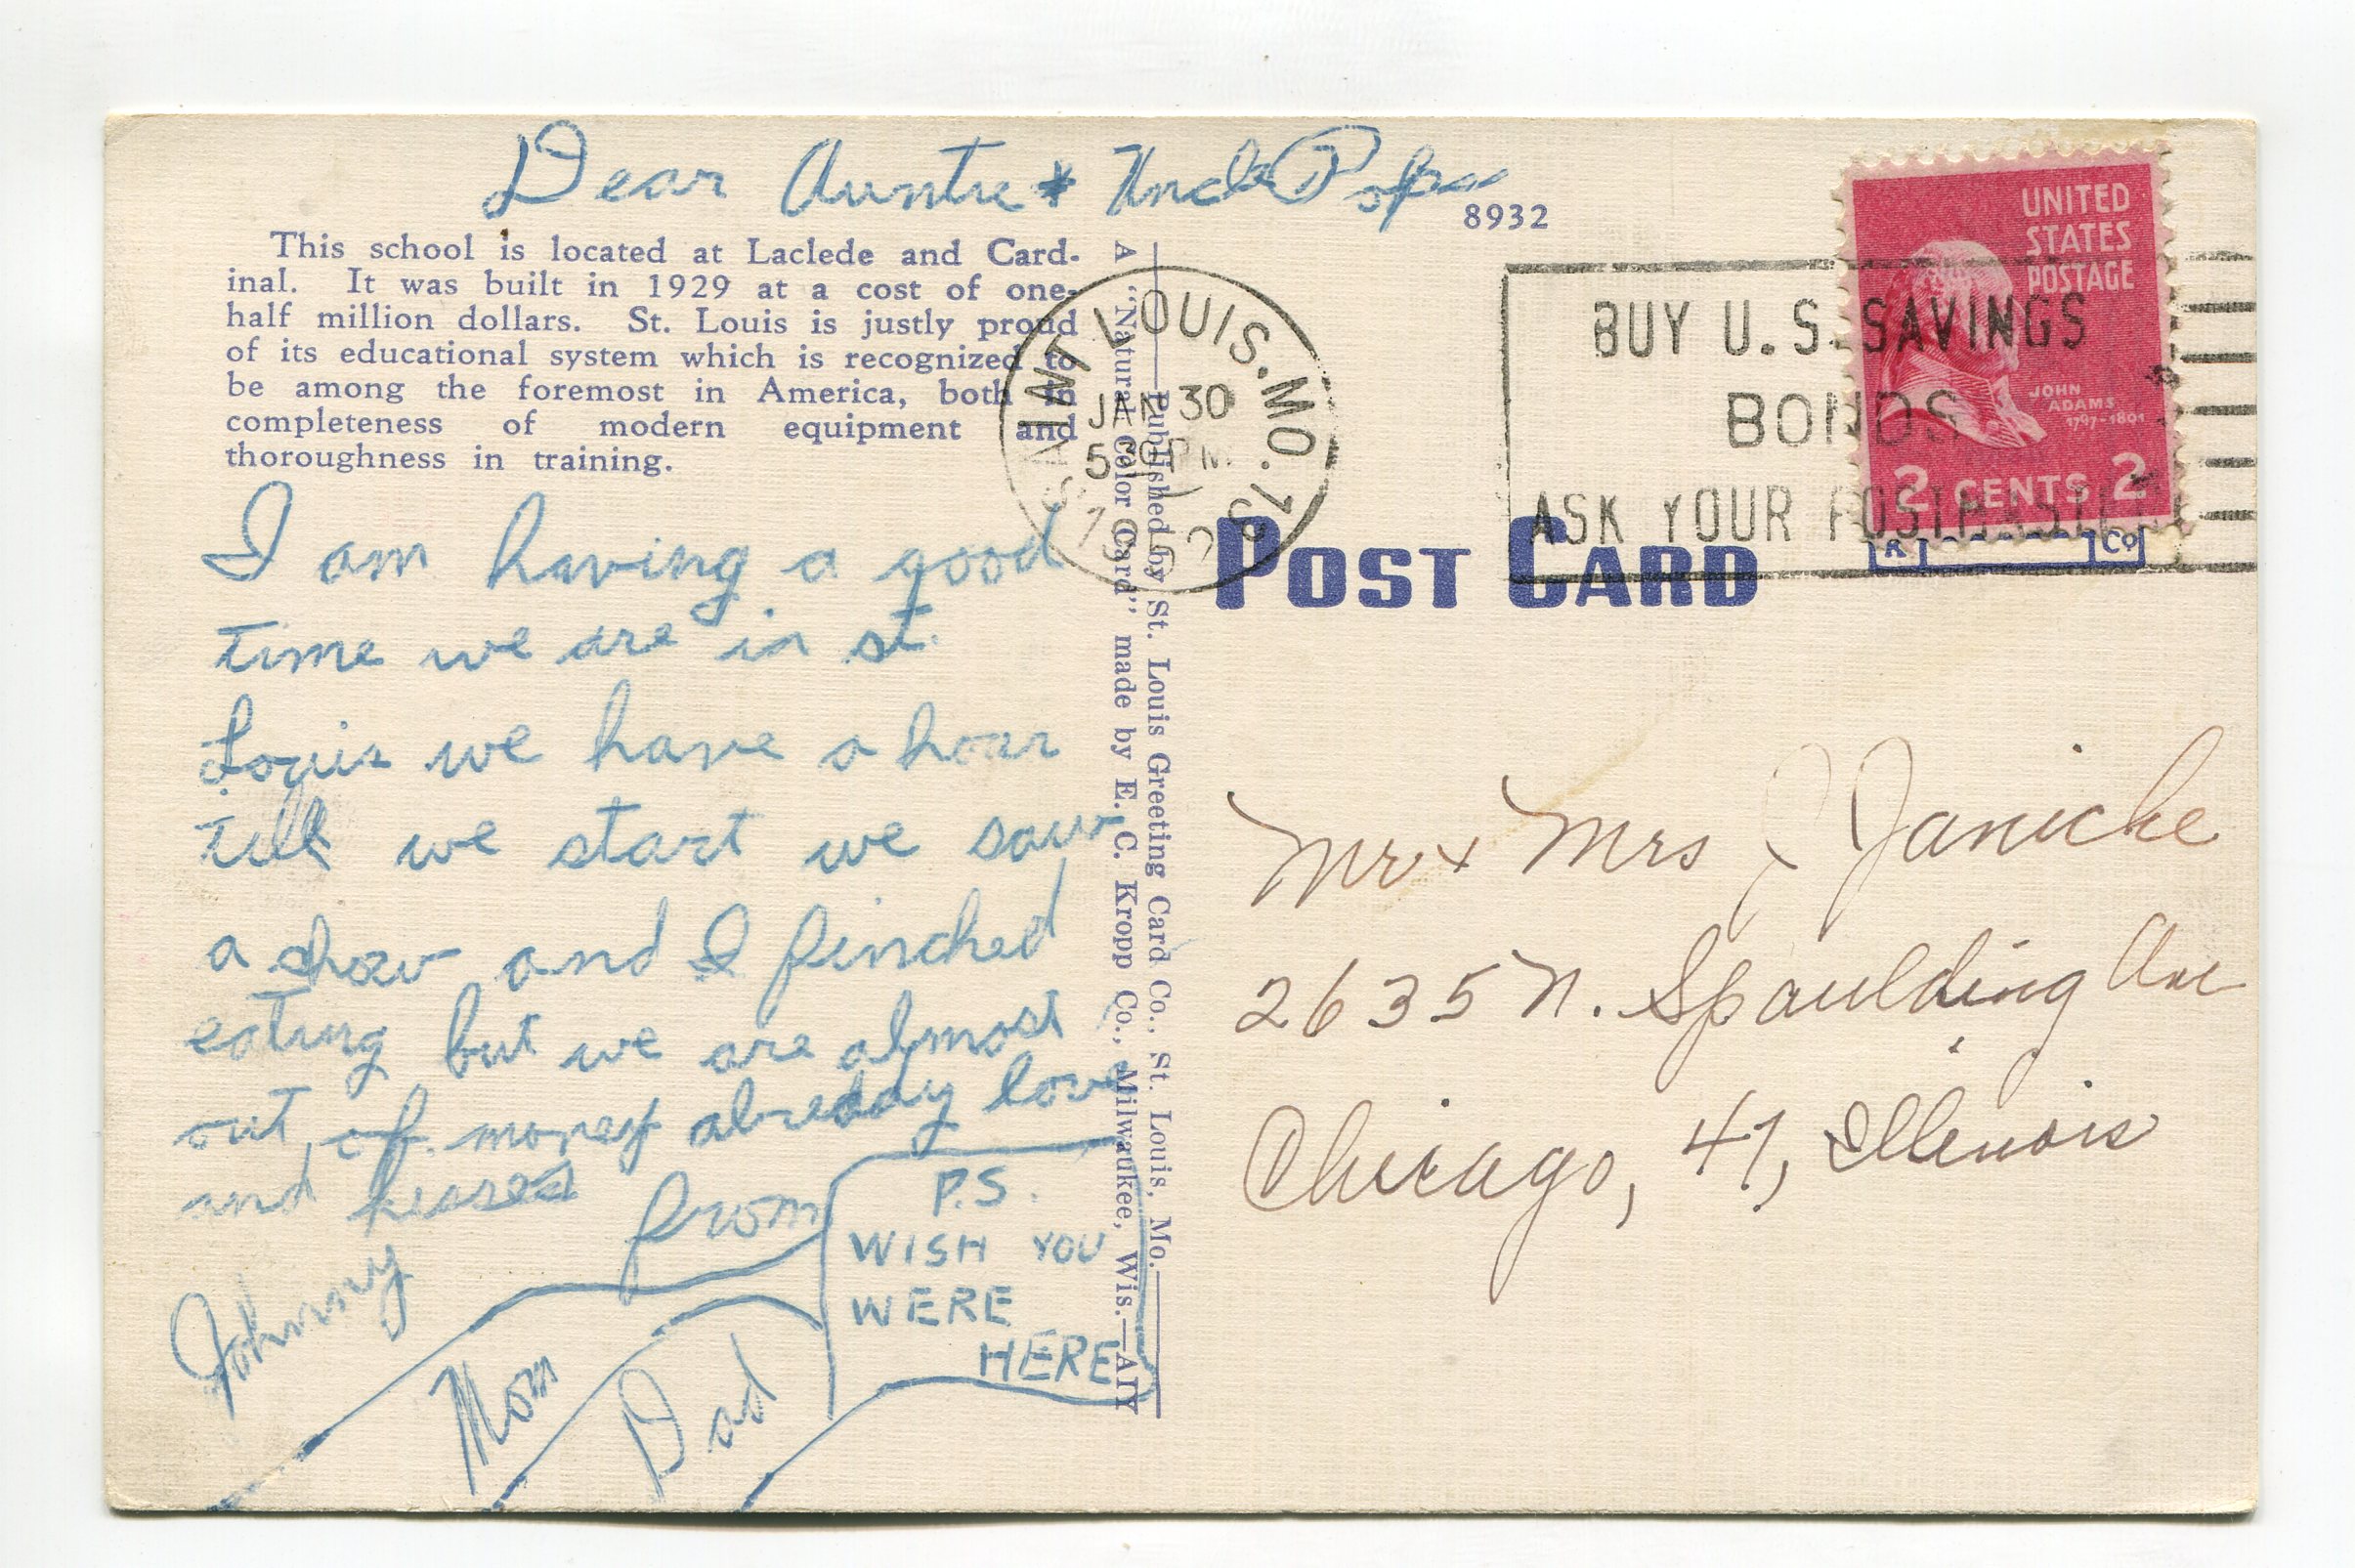 Dear Auntie & Uncle Pops
8932
This school is located at Laclede and Card-
inal. It was built in 1929 at a cost of one-
half million dollars. St. Louis is justly proud
of its educational system which is recognized to
be among the foremost in America, both in
completeness of modern equipment and
thoroughness in training.
I am having a good
time we are in st.
Louis we have a hour
till we start we saw
a show and I finched
eating but we are almost
out of money already love
and kisses from
Johnny
Mom
Dad
P.S.
WISH YOU
WERE
HERE
A "Natural Color Card" made by E. C. Kropp Co., Milwaukee, Wis.—AIY
Published by St. Louis Greeting Card Co., St. Louis, Mo.
SAINT LOUIS, MO. 7
JAN 30
5 PM
BUY U.S. SAVINGS
BONDS
ASK YOUR POSTMASTER
UNITED
STATES
POSTAGE
JOHN
ADAMS
1797-1801
2 CENTS 2
K Co
POST CARD
Mr & Mrs J Janicke
2635 N. Spaulding Ave
Chicago, 47, Illinois